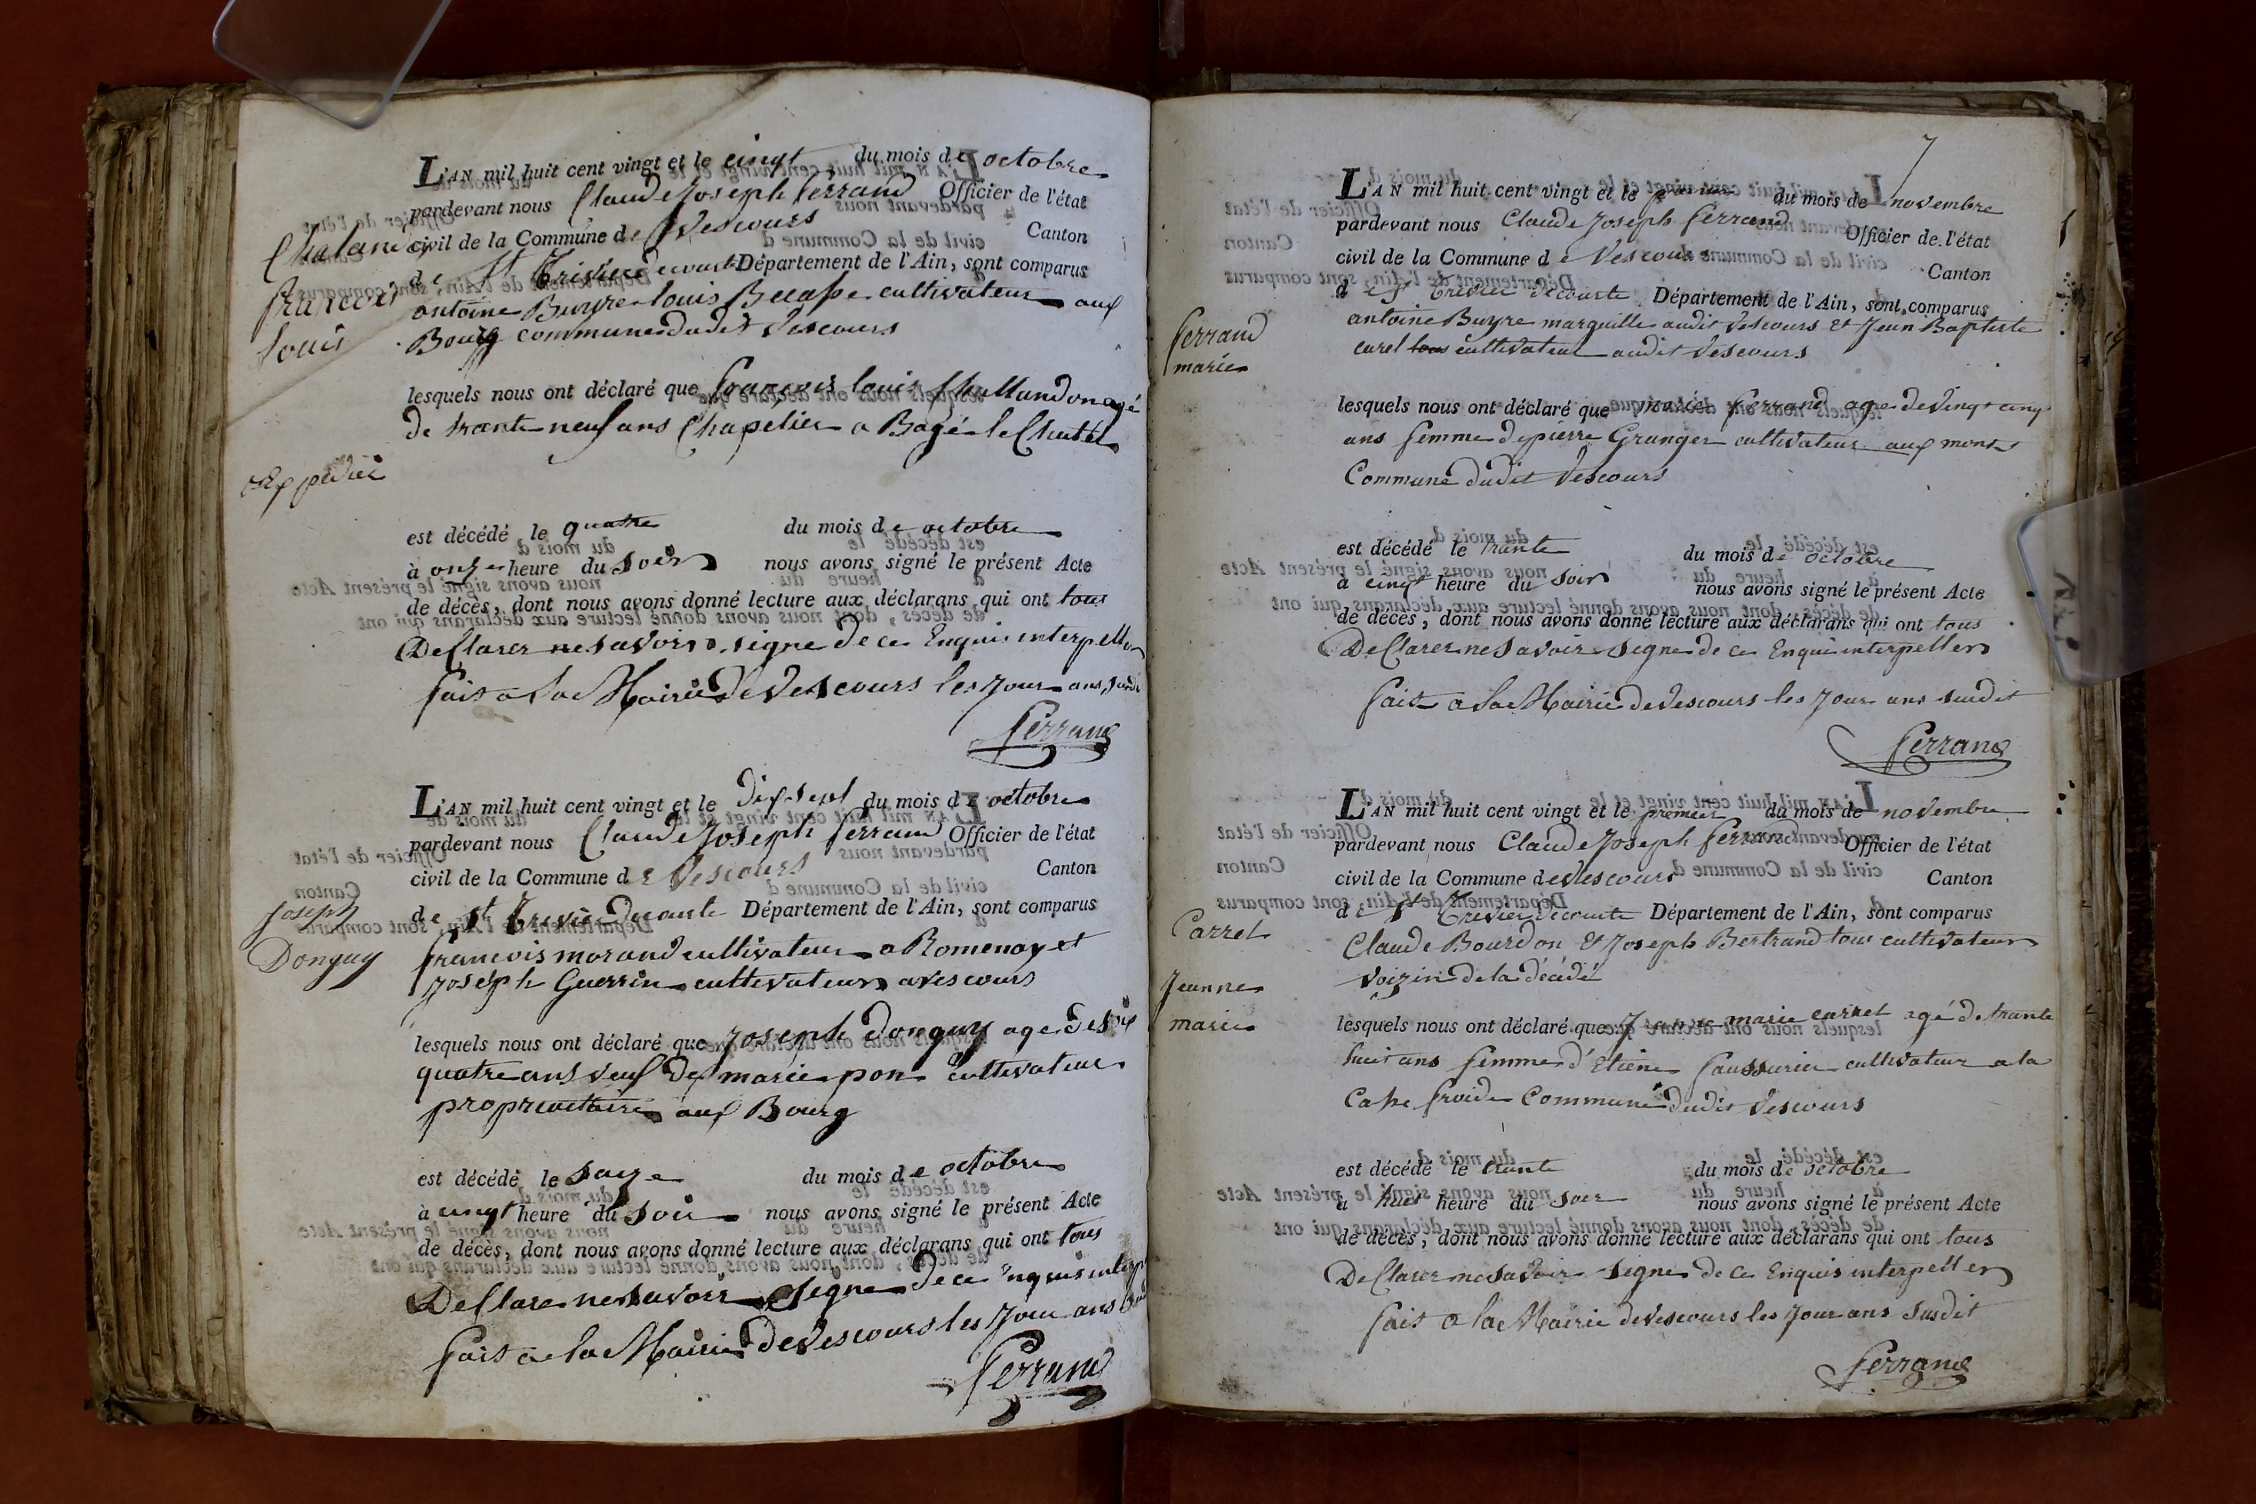 L'AN mil huit cent vingt et le cingt du mois de octobre
pardevant nous Claude Joseph ferrand Officier de l'état
civil de la Commune de Vescours Canton
de St Trivier decourte Département de l'Ain, sont comparus
antoine Buyre louis cultivateur aux
Bourg commune dudit Vescours
francois
louis
lesquels nous ont déclaré que françois louis Challandon agé
de trante neuf ans Chapelier a Bagé le Chattel
Expediée
est décédé le quatre du mois de octobre
à onze heure du soir nous avons signé le présent Acte
de décès, dont nous avons donné lecture aux déclarans qui ont tous
Declarer ne savoir signe de ce Enquis interpeller
fait a la Mairie de Vescours les jour ans susdit
ferrand
L'AN mil huit cent vingt et le dix sept du mois de octobre
pardevant nous Claude Joseph ferrand Officier de l'état
civil de la Commune de Vescours Canton
de St Trivié decourte Département de l'Ain, sont comparus
Joseph
Donguy
francois morand cultivateur a Romenay et
joseph Guerrin cultivateur a vescours
lesquels nous ont déclaré que joseph donguy age de six
quatre ans veuf de marie pon cultivateur
propriaitaire aux Bourg
est décédé le saize du mois de octobre
à cingt heure du soir nous avons signé le présent Acte
de décès, dont nous avons donné lecture aux déclarans qui ont tous
Declare ne savoir signe de ce enquis
fait a la Mairie de Vescours les jour ans
ferrand
7
L'AN mil huit cent vingt et le du mois de novembre
pardevant nous Claude Joseph ferrand Officier de l'état
civil de la Commune de Vescours Canton
de St Trivier decourte Département de l'Ain, sont comparus
ferrand
marie
antoine Buyre marguille audit Vescours et Jean Baptiste
curel tous cultivateur audit Vescours
lesquels nous ont déclaré que marie ferrand age de vingt cinq
ans femme de pierre Granger cultivateur aux monts
Commune dudit Vescours
est décédé le trante du mois de octobre
à cingt heure du soir nous avons signé le présent Acte
de décès, dont nous avons donné lecture aux déclarans qui ont tous
Declarer ne savoir signe de ce Enqui interpeller
fait a la Mairie de Vescours les jour ans susdit
ferrand
L'AN mil huit cent vingt et le premier du mois de novembre
pardevant nous Claude Joseph ferrand Officier de l'état
civil de la Commune de Vescours Canton
de St Trivier decourte Département de l'Ain, sont comparus
Carrel
Jeanne
marie
Claude Bourdon Et Joseph Bertrand tous cultivateur
voizin de la décédé
lesquels nous ont déclaré que Jeanne marie carrel agé de trante
huit ans femme d'Etiene faussurier cultivateur a la
Case froide Commune dudit Vescours
est décédé le trante du mois de octobre
à huit heure du soir nous avons signé le présent Acte
de décès, dont nous avons donné lecture aux déclarans qui ont tous
Declarer ne savoir signe de ce Enquis interpeller
fait a la Mairie de Vescours les jour ans susdit
ferrand